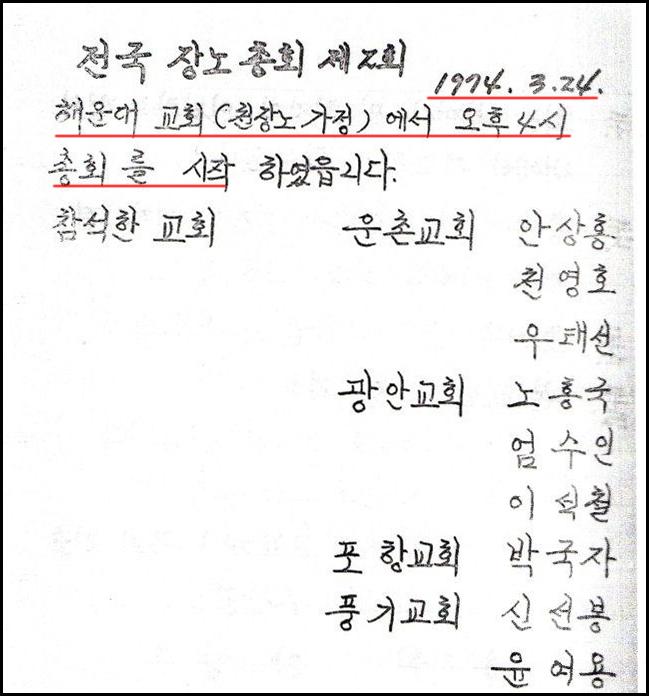 전국 장노총회 제2회
1974. 3.24.
해운대 교회(천장노가정)에서 오후4시
총회를 시작 하였읍니다.
참석한 교회 운촌교회 안상홍
천영호
우태선
광안교회 노흥국
엄수인
이석철
포항교회 박국자
풍기교회 신선봉
윤여용